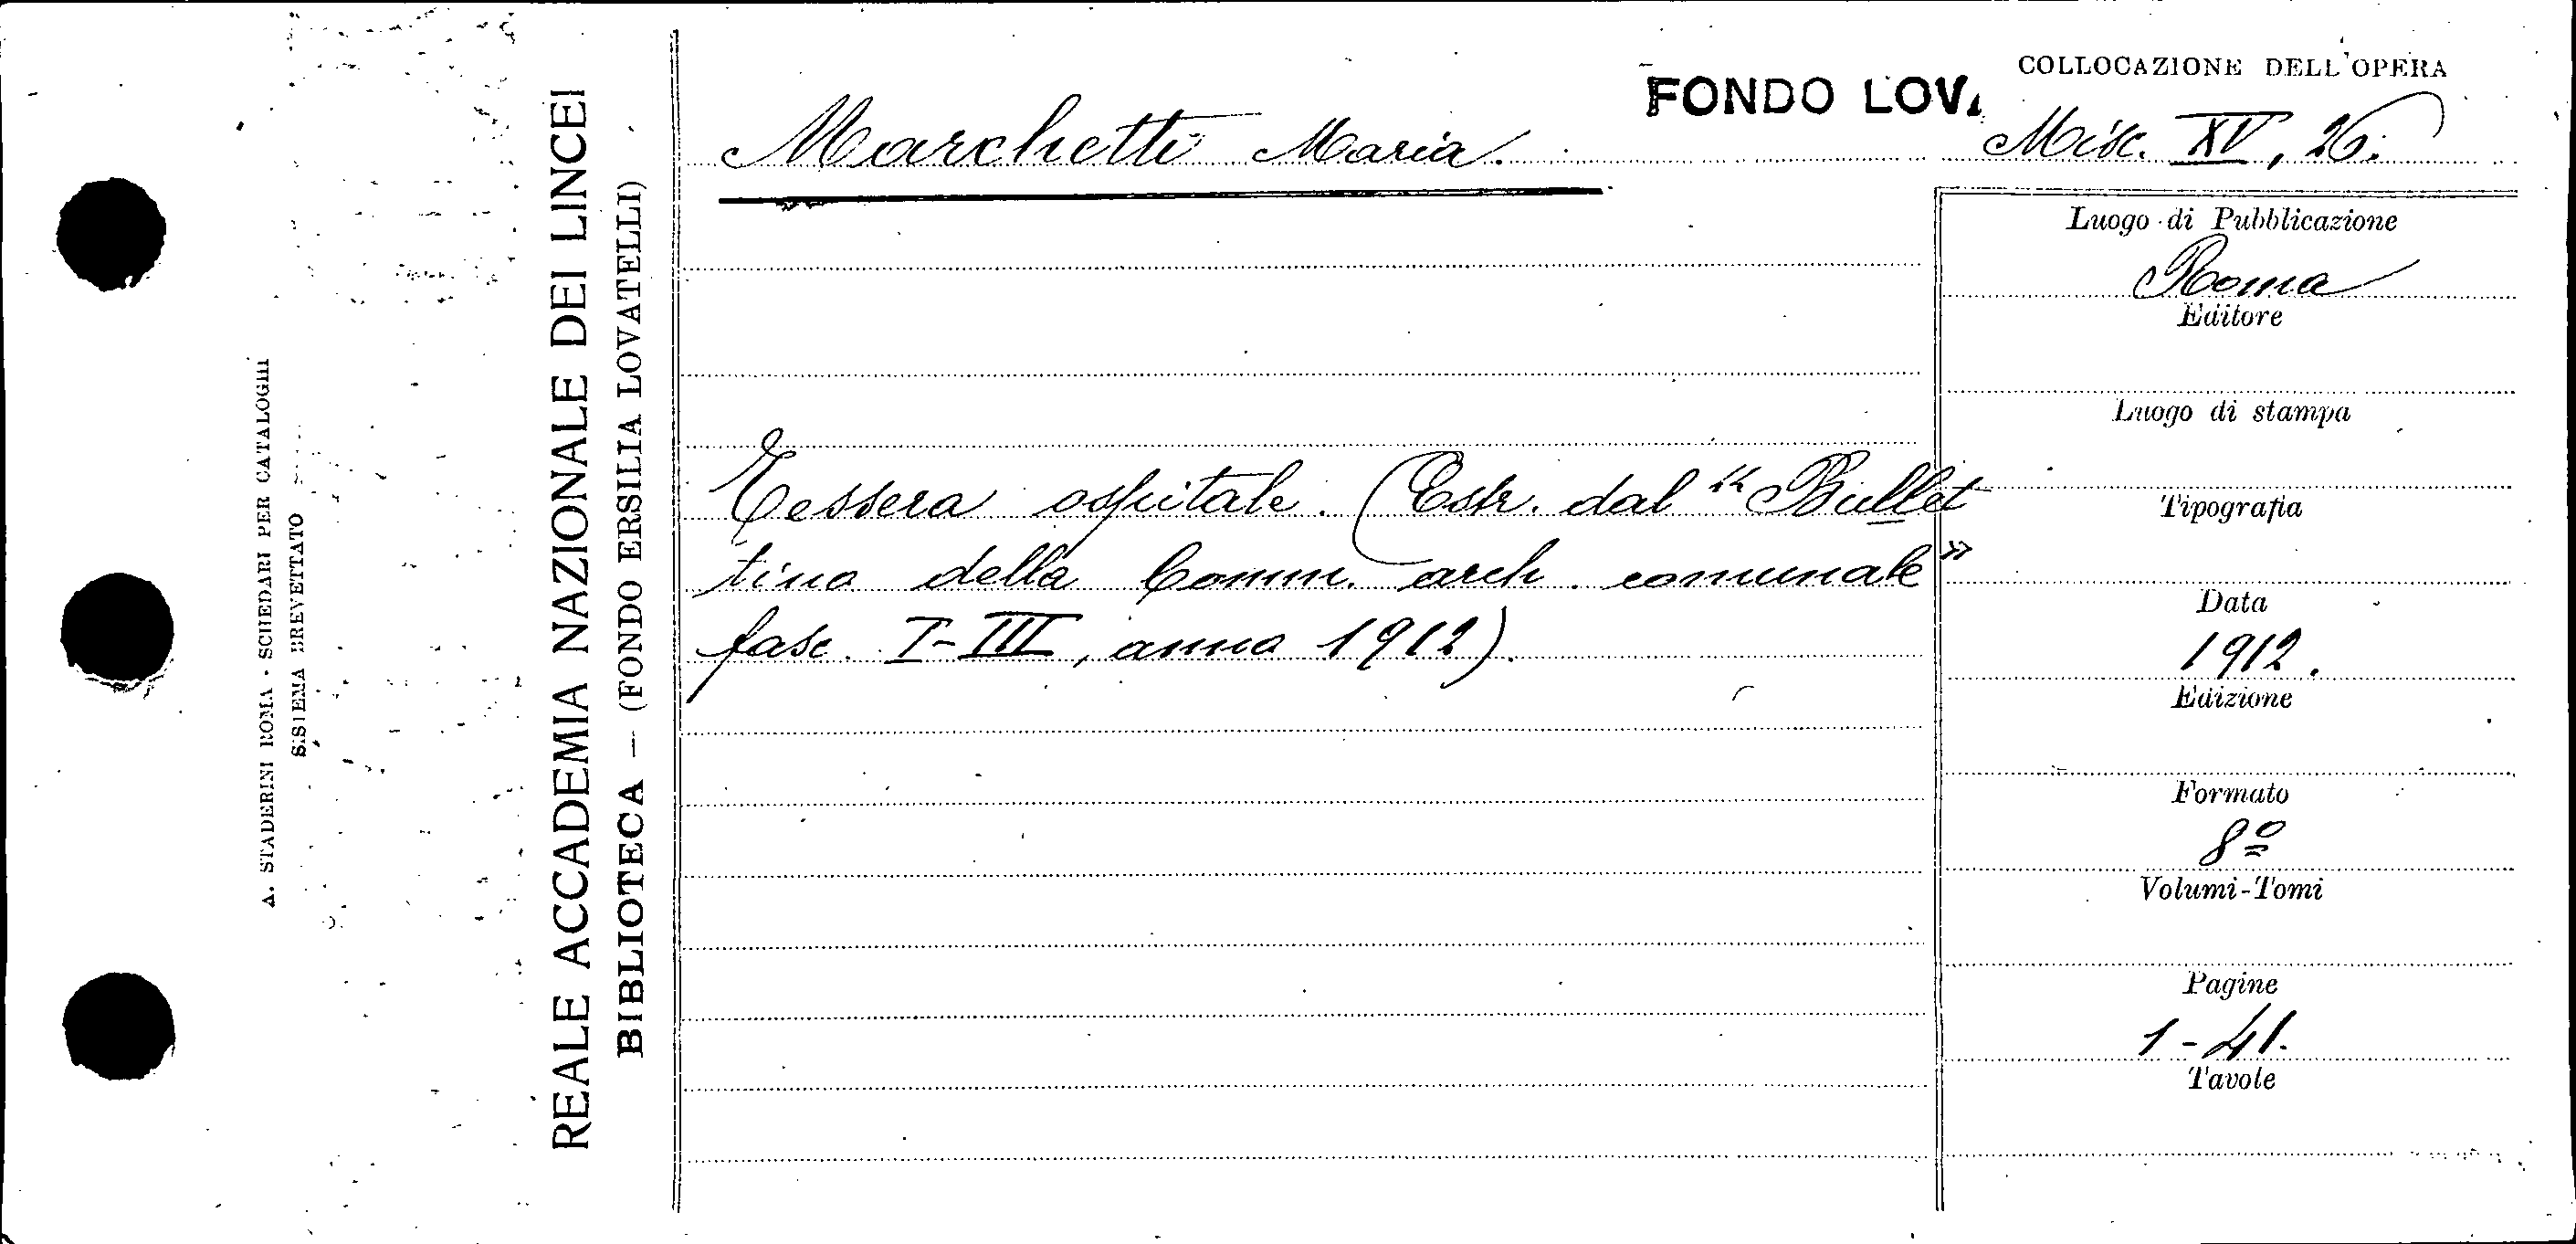 A. STADERINI ROMA - SCHEDARI PER CATALOGHI
SISTEMA BREVETTATO
REALE ACCADEMIA NAZIONALE DEI LINCEI
BIBLIOTECA — (FONDO ERSILIA LOVATELLI)
FONDO LOVA
COLLOCAZIONE DELL'OPERA
Marchetti Maria.
Misc. XV, 26.
Tessera ospitale. (Estr. dal "Bullet
tino della Comm. arch. comunale"
fasc. I-III, anno 1912).
Luogo di Pubblicazione
Roma
Editore
Luogo di stampa
Tipografia
Data
1912.
Edizione
Formato
8º
Volumi-Tomi
Pagine
1-41.
Tavole